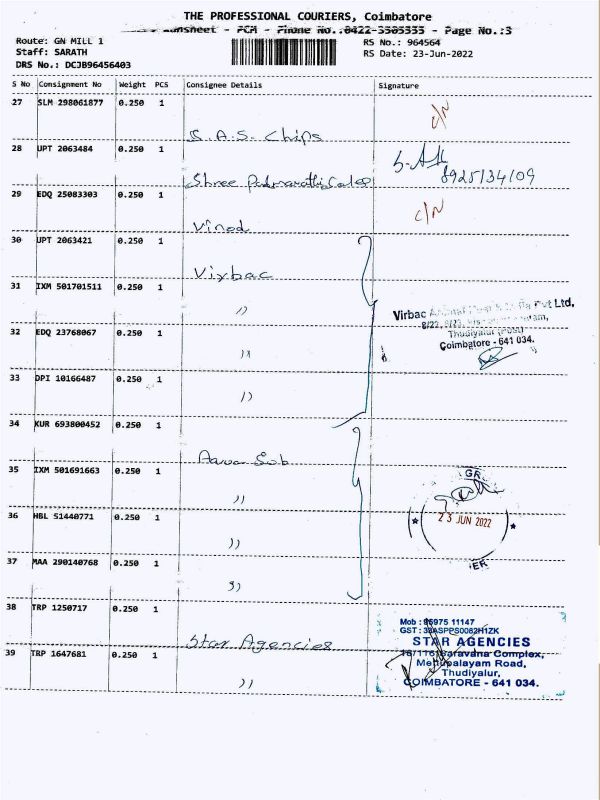 THE PROFESSIONAL COURIERS, Coimbatore
Runsheet - PCM - Phone No.:0422-3305333 - Page No.:3
Route: GN MILL 1
RS No.: 964564
Staff: SARATH
RS Date: 23-Jun-2022
DRS No.: DCJB96456403
S No Consignment No Weight PCS Consignee Details Signature
27 SLM 298061877 0.250 1
S.A.S. Chips
c/N
28 UPT 2063484 0.250 1
Shree
8925134109
29 EDQ 25083303 0.250 1
Vinod
c/N
30 UPT 2063421 0.250 1
Virbac
31 IXM 501701511 0.250 1
"
Virbac Pvt Ltd,
Thudiyalur (Post)
Coimbatore - 641 034.
32 EDQ 23768067 0.250 1
"
33 DPI 10166487 0.250 1
"
34 KUR 693800452 0.250 1
35 IXM 501691663 0.250 1
"
23 JUN 2022
36 HBL 51440771 0.250 1
"
37 MAA 290140768 0.250 1
"
38 TRP 1250717 0.250 1
Star Agencies
39 TRP 1647681 0.250 1
"
Mob : 96975 11147
GST : 33ASPPS0082H1ZK
STAR AGENCIES
Saravana Complex,
Mettupalayam Road,
Thudiyalur,
COIMBATORE - 641 034.